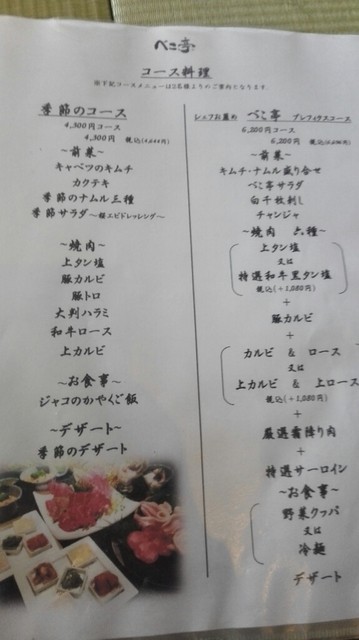 べこ亭
コース料理
※下記コースメニューは2名様よりのご案内となります。
季節のコース
4,300円コース
4,300円 税込(4,644円)
~前菜~
キャベツのキムチ
カクテキ
季節のナムル三種
季節サラダ ~桜エビドレッシング~
~焼肉~
上タン塩
豚カルビ
豚トロ
大判ハラミ
和牛ロース
上カルビ
~お食事~
ジャコのかやくご飯
~デザート~
季節のデザート
シェフお薦め べこ亭 プレフィクスコース
6,200円コース
6,200円 税込(6,696円)
~前菜~
キムチ・ナムル盛り合せ
べこ亭サラダ
白千枚刺し
チャンジャ
~焼肉 六種~
上タン塩
又は
特選和牛黒タン塩
税込(+1,080円)
+
豚カルビ
+
カルビ & ロース
又は
上カルビ & 上ロース
税込(+1,080円)
+
厳選霜降り肉
+
特選サーロイン
~お食事~
野菜クッパ
又は
冷麺
デザート